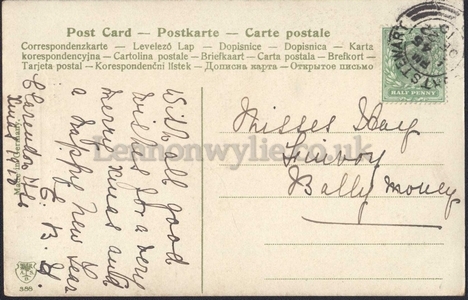 Post Card – Postkarte – Carte postale
Correspondenzkarte – Levelező Lap – Dopisnice – Dopisnica – Karta
korespondencyjna – Cartolina postale – Briefkaart – Carta postala – Brefkort –
Tarjeta postal – Korespondenční lístek – Дописна карта – Открытое письмо
With all good
wishes for a very
merry Xmas and
a happy new Year
E. B. H.
Misses Hay
Finvoy
Ballymoney
HALF PENNY
STEWART
Made in Germany
Lennonwylie.co.uk
386